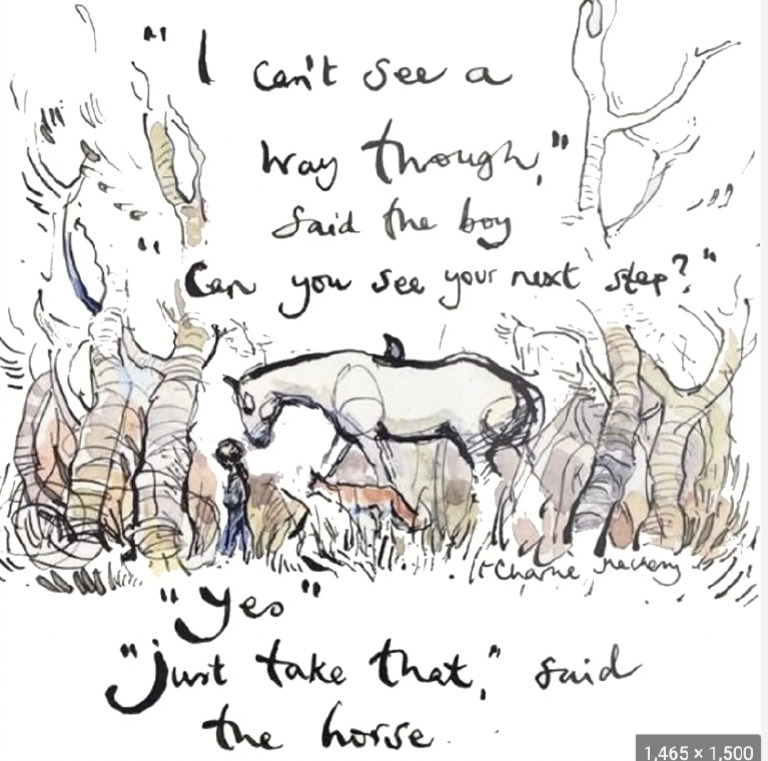 "I can't see a
way through,"
said the boy
"Can you see your next step?"
Charlie Mackesy
"Yes"
"Just take that," said
the horse.
1,465 × 1,500